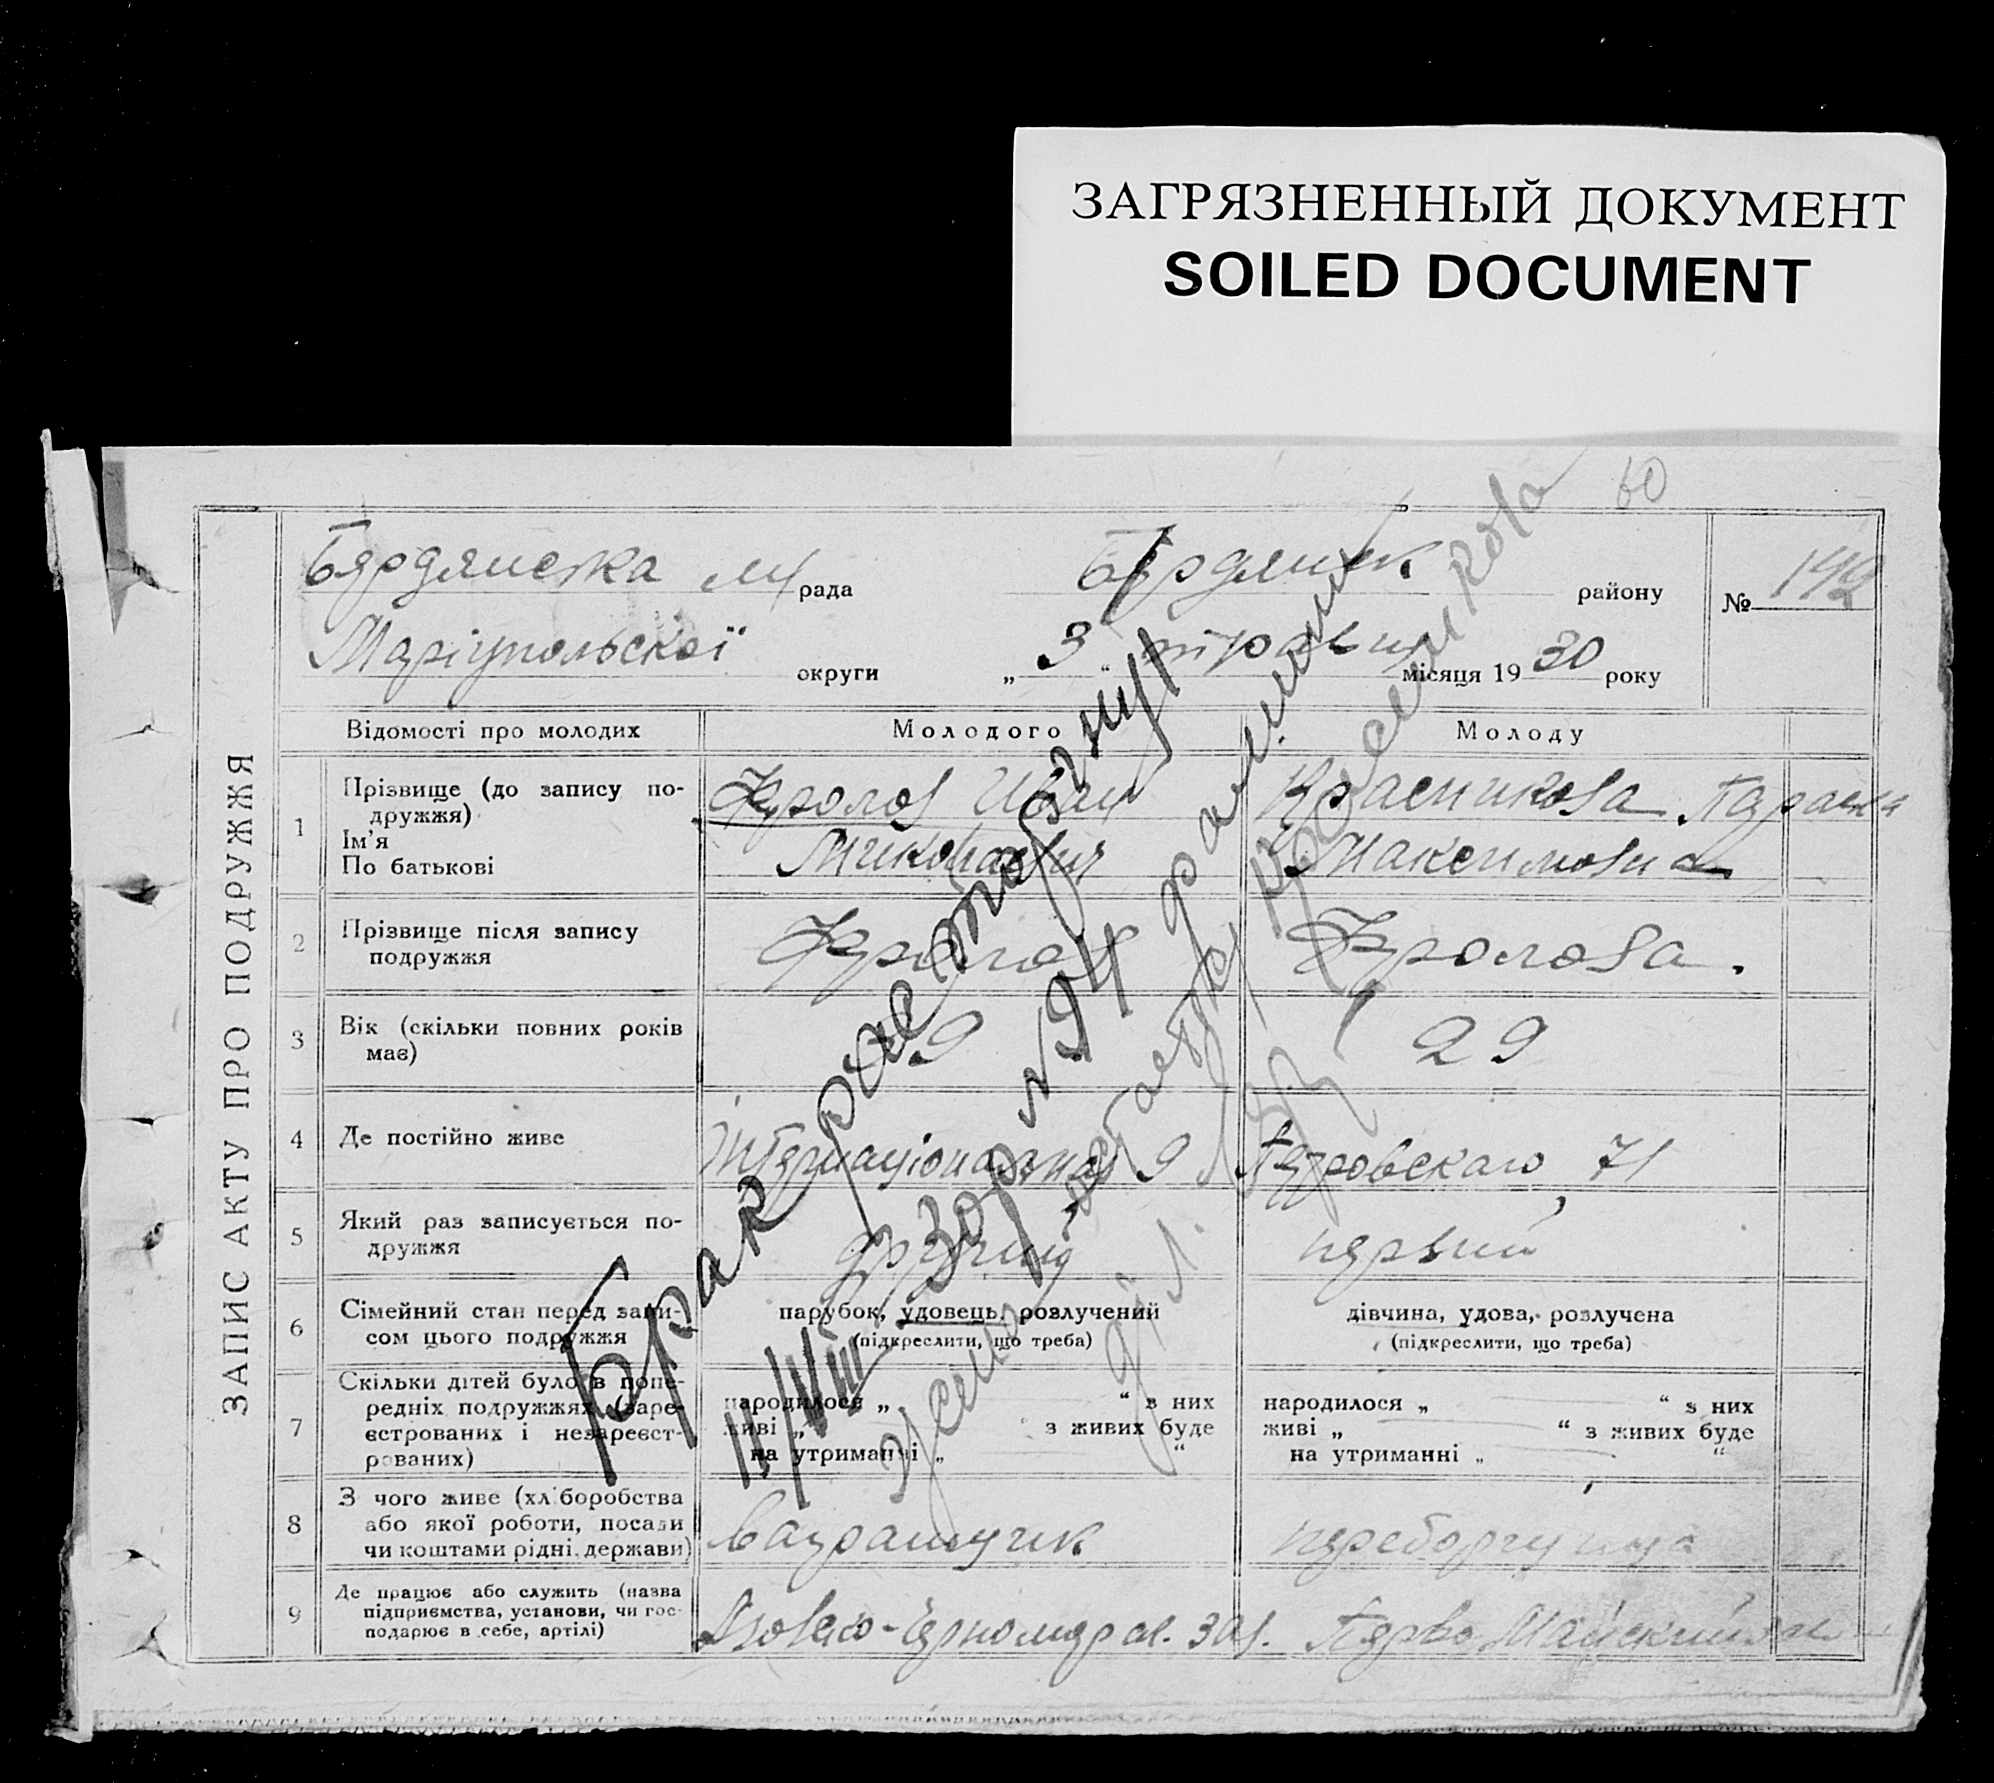 ЗАГРЯЗНЕННЫЙ ДОКУМЕНТ
SOILED DOCUMENT
60
ЗАПИС АКТУ ПРО ПОДРУЖЖЯ
Бярдянська м рада Бярдянськ району №
Маріупольскої округи „ 3 “ травня місяця 19 30 року
Відомості про молодих Молодого Молоду
1 Прізвище (до запису по-
дружжя)
Ім'я
По батькові
Фролов Иван
Миколаевич
Красникова Параска
Максимовна
2 Прізвище після запису
подружжя
Фролов Фролова.
3 Вік (скільки повних років
має)
29
4 Де постійно живе Інтернаціональна 9 Петровскаго 71
5 Який раз записується по-
дружжя
другий первий
6 Сімейний стан перед запи-
сом цього подружжя
парубок, удовець, розлучений
(підкреслити, що треба)
дівчина, удова, розлучена
(підкреслити, що треба)
7 Скільки дітей було в попе-
редніх подружжях (заре-
єстрованих і незареєст-
рованих)
народилося „ “ з них
живі „ “ з живих буде
на утриманні „ “
народилося „ “ з них
живі „ “ з живих буде
на утриманні „ “
8 З чого живе (хліборобства
або якої роботи, посади
чи коштами рідні, держави)
9 Де працює або служить (назва
підприємства, установи, чи гос-
подарює в себе, артілі)
Брак расторгнут
11/VIII 30 р №94 фамилии
Красникова